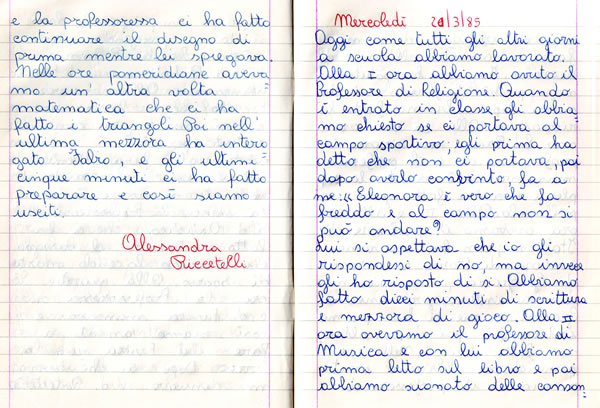 e la professoressa ci ha fatto
continuare il disegno di
prima mentre lei spiegava.
Nelle ore pomeridiane aveva
mo un' altra volta
matematica che ci ha
fatto i triangoli Poi nell'
ultima mezzora ha interro
gato Falro, e gli ultimi
cinque minuti ci ha fatto
preparare e così siamo
usciti.
Alessandra
Puccetelli
Mercoledì 20/3/85
Oggi come tutti gli altri giorni
a scuola abbiamo lavorato.
Alla I ora abbiamo avuto il
Professore di Religione. Quando
è entrato in classe gli abbia=
mo chiesto se ci portava al
campo sportivo, egli prima ha
detto che non ci portava, poi
dopo averlo convinto, fa a
me: << Eleonora è vero che fa
freddo e al campo non si
può andare?
Lui si aspettava che io gli
rispondessi di no, ma invece
gli ho risposto di si. Abbiamo
fatto dieci minuti di scrittura
e mezzora di gioco. Alla II
ora avevamo il professore di
Musica e con lui abbiamo
prima letto sul libro e poi
abbiamo suonato delle canson=